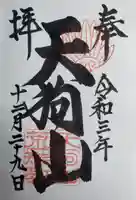 奉拝
天狗山
令和三年
十二月二十九日